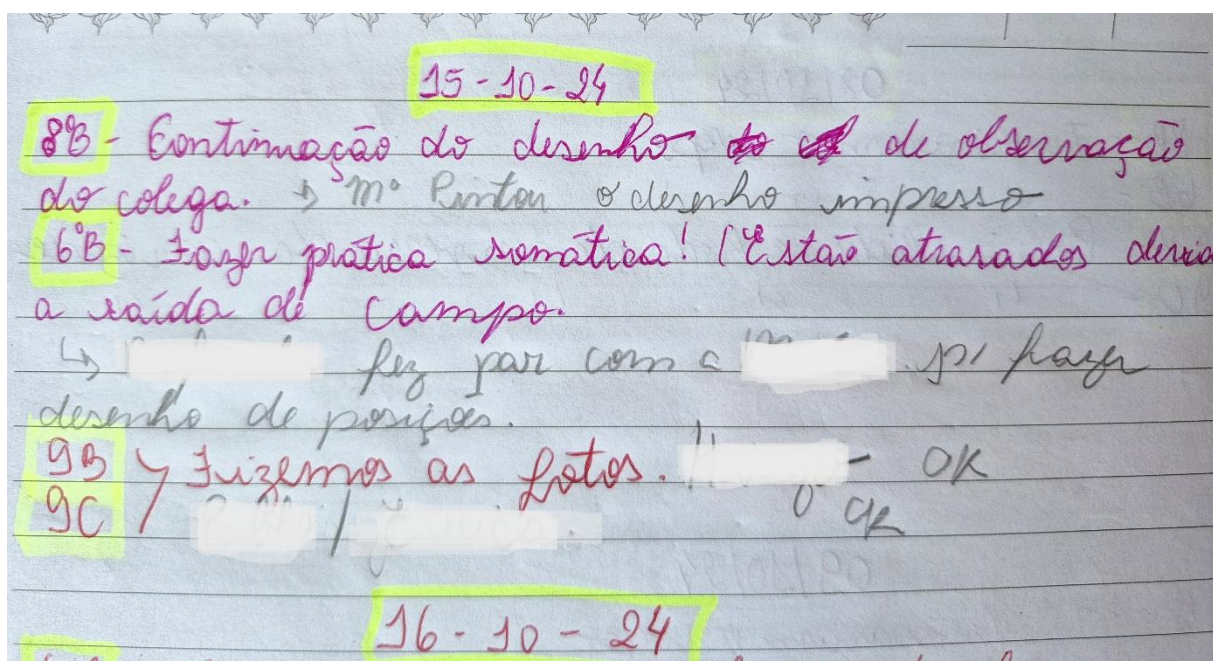 15-10-24
8ºB - Continuação do desenho de observação
do colega. → Mº Pintou o desenho impresso
6ºB - Fazer prática somática! (Estão atrasados devido
a saída de campo.
↳ fez par com a p/ fazer
desenho de posições.
9B Fizemos as fotos. - OK
9C / OK
16-10-24